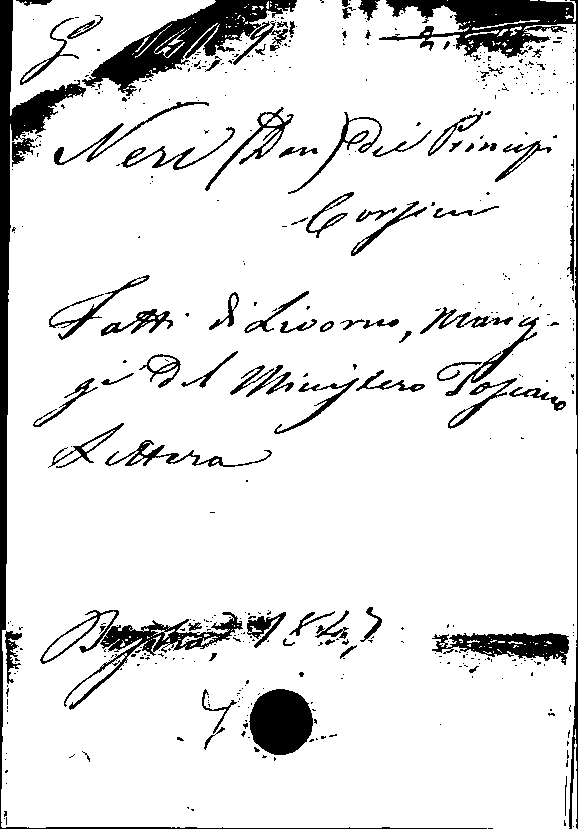 Neri (Don) dei Principi
Corsini
Fatti di Livorno, Maneg-
gi del Ministero Toscano
Lettera
Bastia, 1847
4